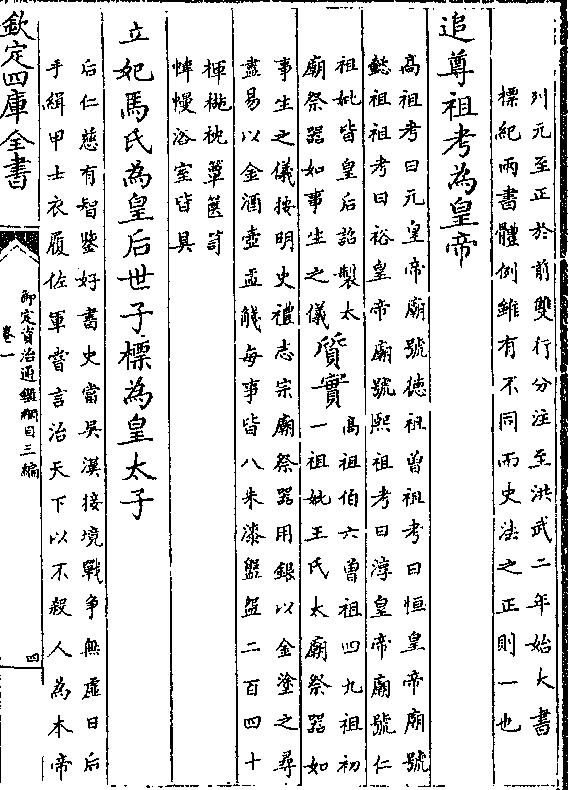 列元至正於前雙行分注至洪武二年始大書
標紀兩書體例雖有不同而史法之正則一也
追尊祖考為皇帝
高祖考曰元皇帝廟號德祖曾祖考曰恒皇帝廟號
懿祖祖考曰裕皇帝廟號熙祖考曰淳皇帝廟號仁
祖妣皆皇后詔製太
廟祭器如事生之儀
質實
高祖伯六曾祖四九祖初
一祖妣王氏太廟祭器如
事生之儀按明史禮志宗廟祭器用銀以金塗之尋
盡易以金酒壺盂觥每事皆八朱漆盤盌二百四十
楎椸枕簟篋笥
幃幔浴室皆具
立妃馬氏為皇后世子標為皇太子
后仁慈有智鑒好書史當吳漢接境戰爭無虛日后
手緝甲士衣履佐軍嘗言治天下以不殺人為本帝
欽定四庫全書
御定資治通鑑綱目三編
卷一
四